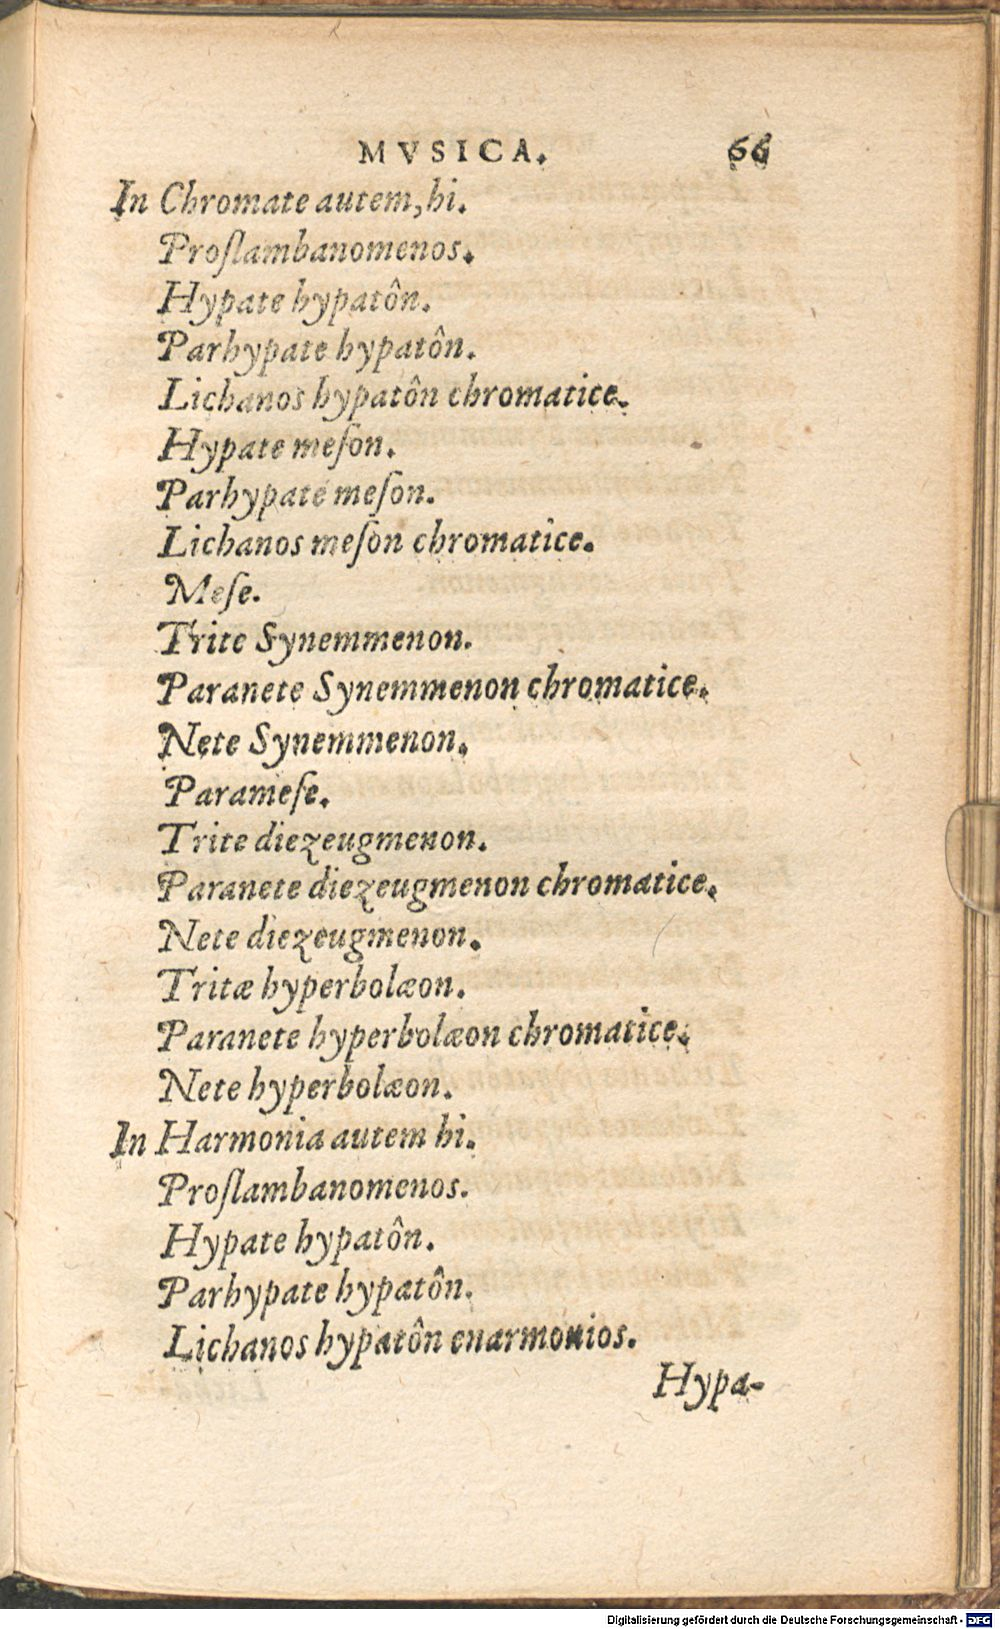 MVSICA. 66
In Chromate autem, hi.
Proſlambanomenos.
Hypate hypatôn.
Parhypate hypatôn.
Lichanos hypatôn chromatice.
Hypate meſon.
Parhypate meſon.
Lichanos meſon chromatice.
Meſe.
Trite Synemmenon.
Paranete Synemmenon chromatice.
Nete Synemmenon.
Parameſe.
Trite diezeugmenon.
Paranete diezeugmenon chromatice.
Nete diezeugmenon.
Tritæ hyperbolæon.
Paranete hyperbolæon chromatice.
Nete hyperbolæon.
In Harmonia autem hi.
Proſlambanomenos.
Hypate hypatôn.
Parhypate hypatôn.
Lichanos hypatôn enarmonios.
Hypa-
Digitalisierung gefördert durch die Deutsche Forschungsgemeinschaft - DFG